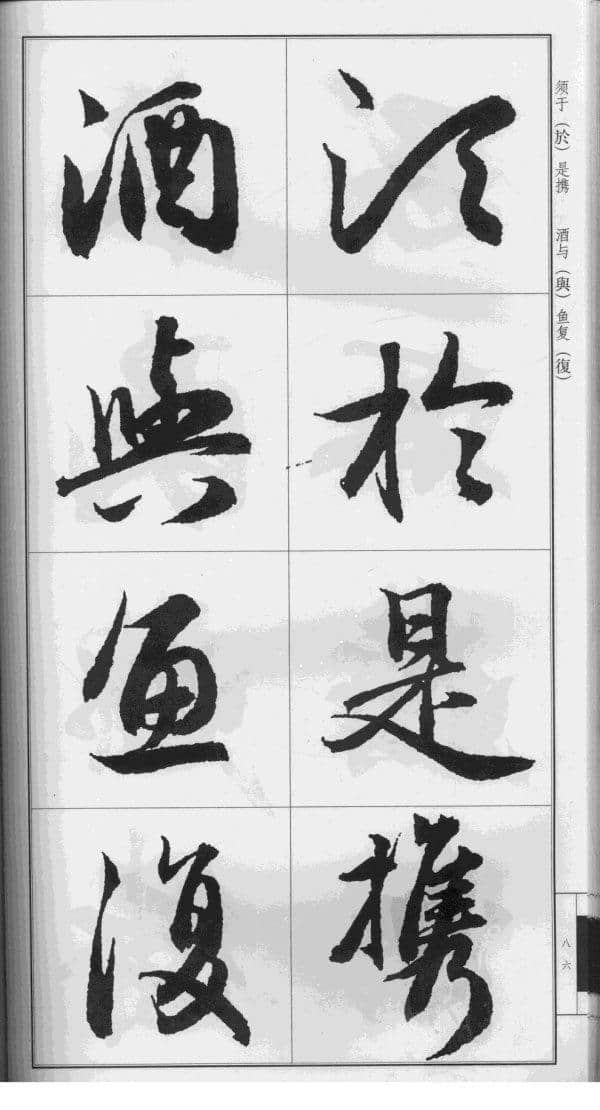 须于（於）是携　酒与（與）鱼复（復）
須於是攜
酒與魚復
八六